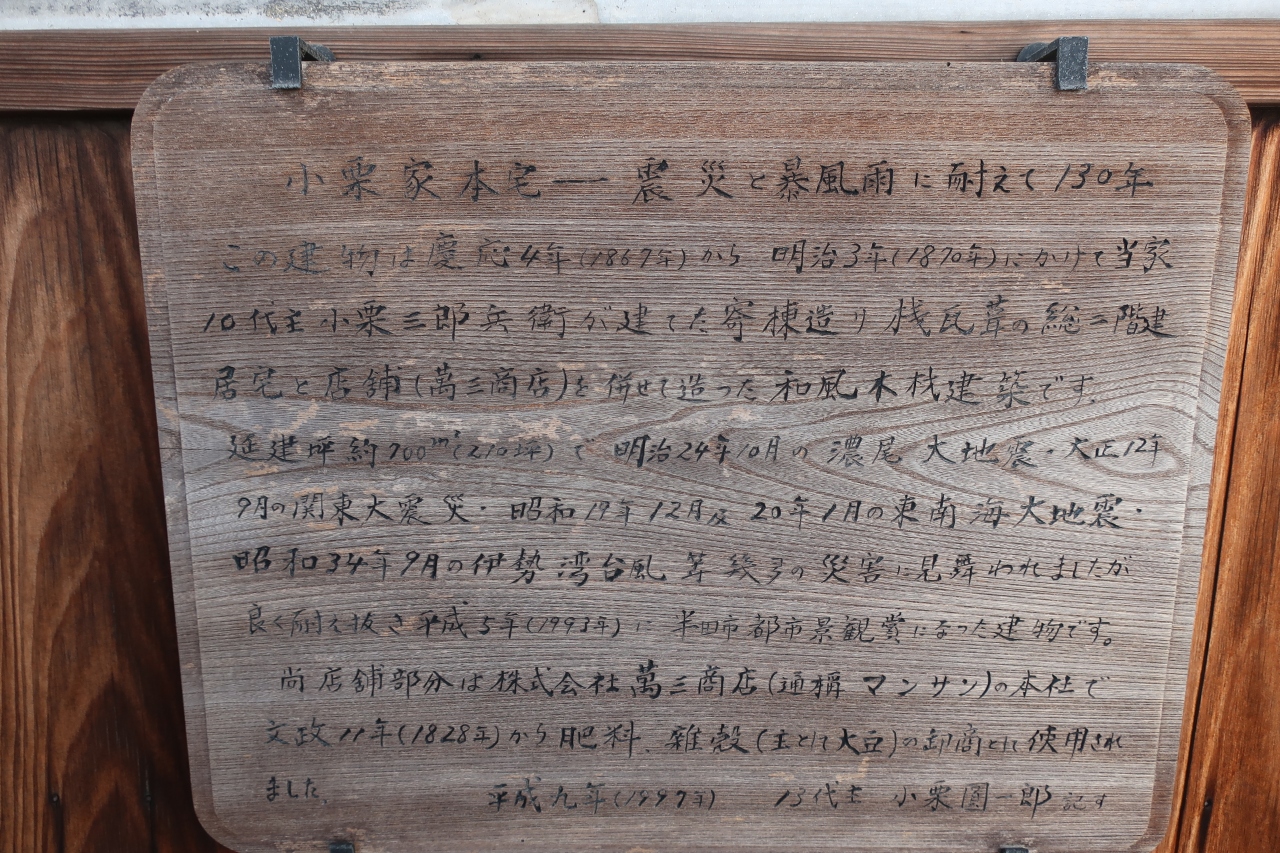 小栗家本宅──震災と暴風雨に耐えて130年
この建物は慶応4年(1867年)から 明治3年(1870年)にかけて当家
10代主小栗三郎兵衛が建てた寄棟造り桟瓦葺の総二階建
居宅と店舗(萬三商店)を併せて造った和風木材建築です。
延建坪約700m²(210坪)で 明治24年10月の濃尾大地震・大正12年
9月の関東大震災・昭和19年12月及20年1月の東南海大地震・
昭和34年9月の伊勢湾台風等幾多の災害に見舞われましたが
良く耐え抜き平成5年(1993年)に 半田市都市景観賞になった建物です。
尚店舗部分は株式会社萬三商店(通稱マンサン)の本社で
文政11年(1828年)から肥料、雑穀(主として大豆)の卸商として使用され
ました。 平成九年(1997年) 13代主 小栗圓一郎 記す